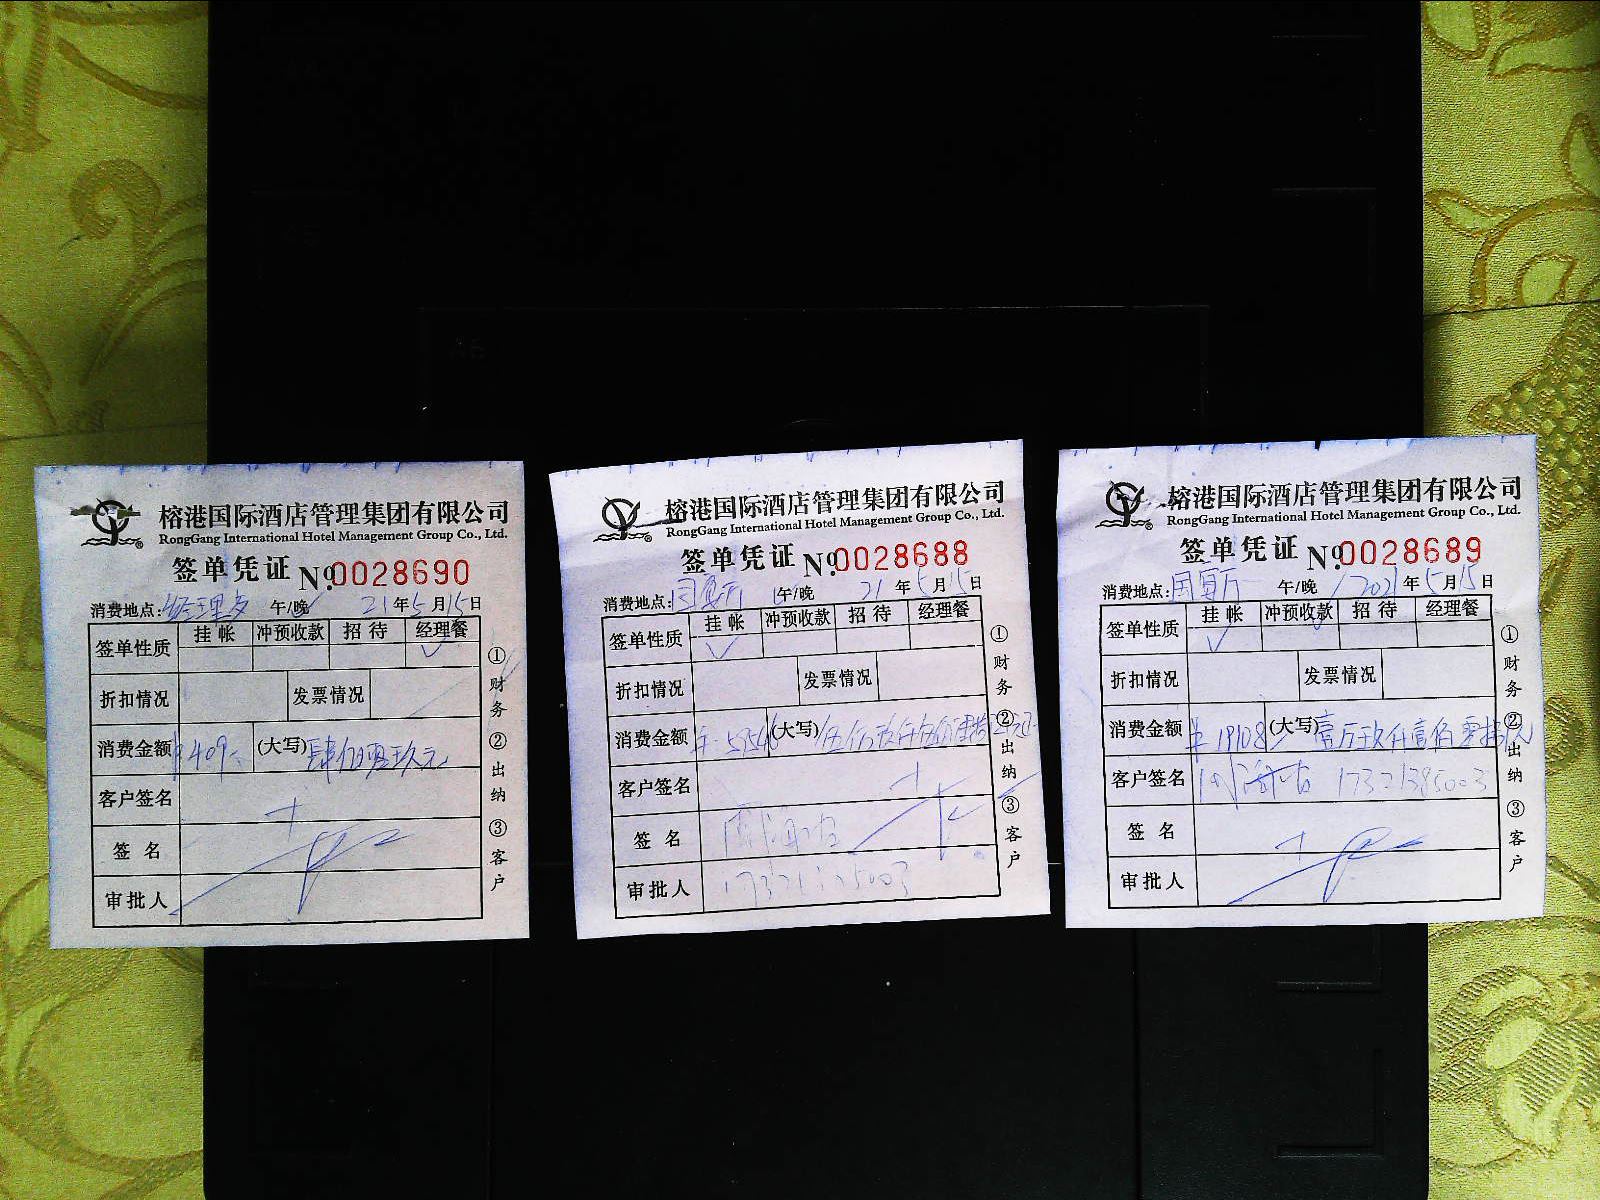 榕港国际酒店管理集团有限公司
RongGang International Hotel Management Group Co., Ltd.
签单凭证 No.0028690
消费地点: 经理 午/晚 21年5月15日
签单性质 挂帐 冲预收款 招待 经理餐
折扣情况 发票情况
消费金额 409 (大写) 肆佰零玖元
客户签名
签名
审批人
①财务 ②出纳 ③客户
榕港国际酒店管理集团有限公司
RongGang International Hotel Management Group Co., Ltd.
签单凭证 No.0028688
消费地点: 午/晚 21年5月15日
签单性质 挂帐 冲预收款 招待 经理餐
折扣情况 发票情况
消费金额 (大写)
客户签名
签名
审批人
①财务 ②出纳 ③客户
榕港国际酒店管理集团有限公司
RongGang International Hotel Management Group Co., Ltd.
签单凭证 No.0028689
消费地点: 国宴厅 午/晚 2021年5月15日
签单性质 挂帐 冲预收款 招待 经理餐
折扣情况 发票情况
消费金额 19108 (大写) 壹万玖仟壹佰零捌元
客户签名 17321385003
签名
审批人
①财务 ②出纳 ③客户